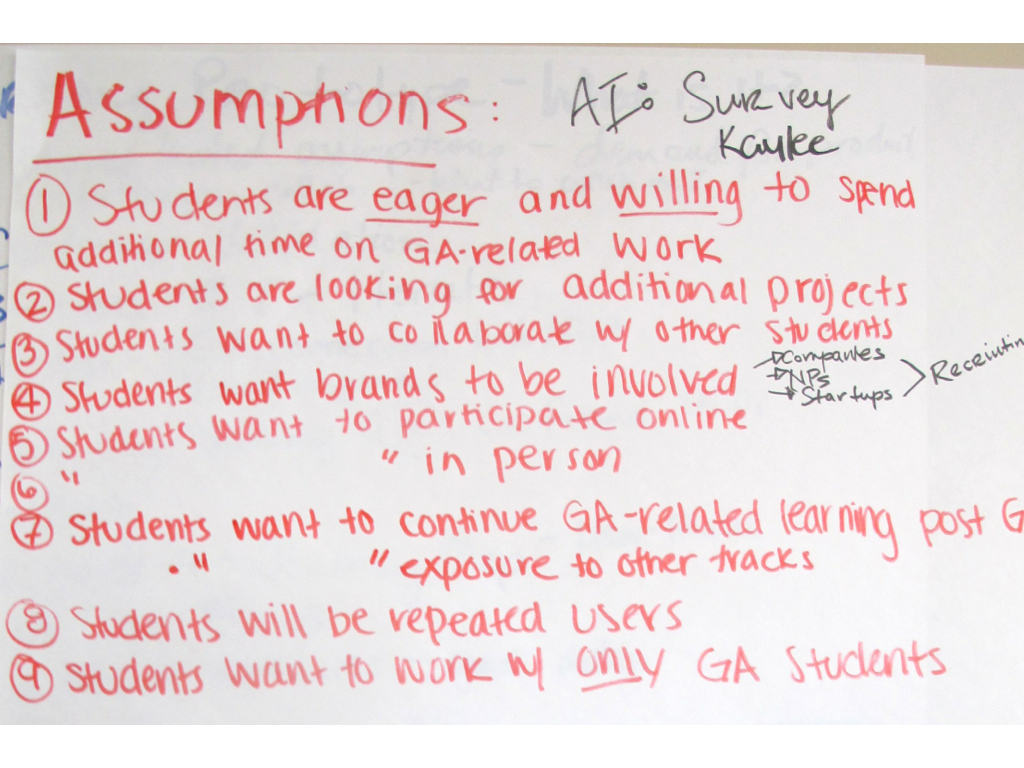 Assumptions:
AI: Survey
Kaylee
① Students are eager and willing to spend
additional time on GA-related work
② Students are looking for additional projects
③ Students want to collaborate w/ other students
④ Students want brands to be involved
→ Companies
→ NPs
→ Startups
⑤ Students want to participate online
⑥ " " in person
⑦ Students want to continue GA-related learning post G
• " " exposure to other tracks
⑧ Students will be repeated users
⑨ Students want to work w/ only GA students